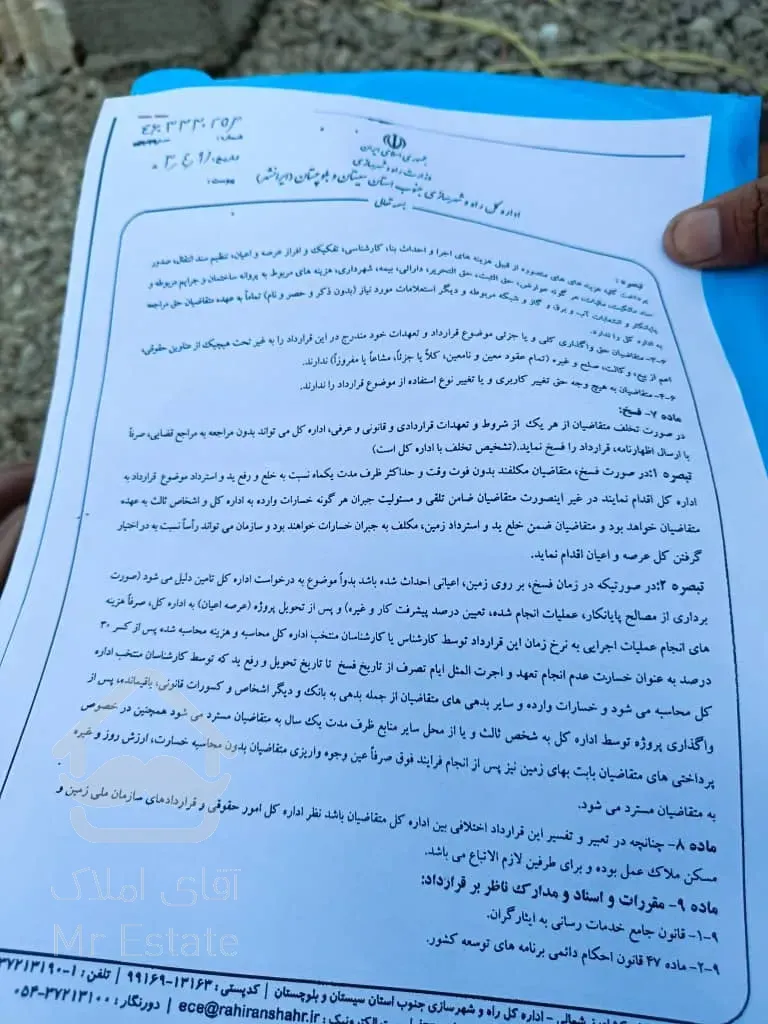 جمهوری اسلامی ایران
وزارت راه و شهرسازی
اداره کل راه و شهرسازی جنوب استان سیستان و بلوچستان (ایرانشهر)
بسمه تعالی
شماره:
تاریخ:
پیوست:
تبصره:
پرداخت کلیه هزینه های متصوره از قبیل هزینه های اجرا و احداث بنا، کارشناسی، تفکیک و افراز عرصه و اعیان، تنظیم سند انتقال، صدور
سند مالکیت، مالیات، هر گونه عوارض، حق الثبت، حق التحریر، دارائی، بیمه، شهرداری، هزینه های مربوط به پروانه ساختمان و جرایم مربوطه و
پایانکار و انشعابات آب و برق و گاز و شبکه مربوطه و دیگر استعلامات مورد نیاز (بدون ذکر و حصر و نام) تماماً به عهده متقاضیان حق مراجعه
به اداره کل را ندارد.
۶-۳- متقاضیان حق واگذاری کلی و یا جزئی موضوع قرارداد و تعهدات خود مندرج در این قرارداد را به غیر تحت هیچیک از عناوین حقوقی،
اعم از بیع، وکالت، صلح و غیره (تمام عقود معین و نامعین، کلاً یا جزئاً، مشاعاً یا مفروزاً) ندارند.
۶-۴- متقاضیان به هیچ وجه حق تغییر کاربری و یا تغییر نوع استفاده از موضوع قرارداد را ندارند.
ماده ۷- فسخ:
در صورت تخلف متقاضیان از هر یک از شروط و تعهدات قراردادی و قانونی و عرفی، اداره کل می تواند بدون مراجعه به مراجع قضایی، صرفاً
با ارسال اظهارنامه، قرارداد را فسخ نماید.(تشخیص تخلف با اداره کل است)
تبصره ۱:در صورت فسخ، متقاضیان مکلفند بدون فوت وقت و حداکثر ظرف مدت یکماه نسبت به خلع و رفع ید و استرداد موضوع قرارداد به
اداره کل اقدام نمایند در غیر اینصورت متقاضیان ضامن تلقی و مسئولیت جبران هر گونه خسارات وارده به اداره کل و اشخاص ثالث به عهده
متقاضیان خواهد بود و متقاضیان ضمن خلع ید و استرداد زمین، مکلف به جبران خسارات خواهند بود و سازمان می تواند رأساً نسبت به در اختیار
گرفتن کل عرصه و اعیان اقدام نماید.
تبصره ۲:در صورتیکه در زمان فسخ، بر روی زمین، اعیانی احداث شده باشد بدواً موضوع به درخواست اداره کل تامین دلیل می شود (صورت
برداری از مصالح پایانکار، عملیات انجام شده، تعیین درصد پیشرفت کار و غیره) و پس از تحویل پروژه (عرصه اعیان) به اداره کل، صرفاً هزینه
های انجام عملیات اجرایی به نرخ زمان این قرارداد توسط کارشناس یا کارشناسان منتخب اداره کل محاسبه و هزینه محاسبه شده پس از کسر ۳۰
درصد به عنوان خسارت عدم انجام تعهد و اجرت المثل ایام تصرف از تاریخ فسخ تا تاریخ تحویل و رفع ید که توسط کارشناسان منتخب اداره
کل محاسبه می شود و خسارات وارده و سایر بدهی های متقاضیان از جمله بدهی به بانک و دیگر اشخاص و کسورات قانونی، باقیمانده، پس از
واگذاری پروژه توسط اداره کل به شخص ثالث و یا از محل سایر منابع ظرف مدت یک سال به متقاضیان مسترد می شود همچنین در خصوص
پرداختی های متقاضیان بابت بهای زمین نیز پس از انجام فرایند فوق صرفاً عین وجوه واریزی متقاضیان بدون محاسبه خسارت، ارزش روز و غیره
به متقاضیان مسترد می شود.
ماده ۸- چنانچه در تعبیر و تفسیر این قرارداد اختلافی بین اداره کل متقاضیان باشد نظر اداره کل امور حقوقی و قراردادهای سازمان ملی زمین و
مسکن ملاک عمل بوده و برای طرفین لازم الاتباع می باشد.
ماده ۹- مقررات و اسناد و مدارک ناظر بر قرارداد:
۹-۱- قانون جامع خدمات رسانی به ایثارگران.
۹-۲- ماده ۴۷ قانون احکام دائمی برنامه های توسعه کشور.
شمالی - اداره کل راه و شهرسازی جنوب استان سیستان و بلوچستان | کدپستی: ۱۳۱۶۳-۹۹۱۶۹ | تلفن: ۱-۳۷۲۱۳۱۹۰
ece@rahiranshahr.ir | دورنگار: ۳۷۲۱۳۱۰۰-۰۵۴
آقای املاک
Mr Estate